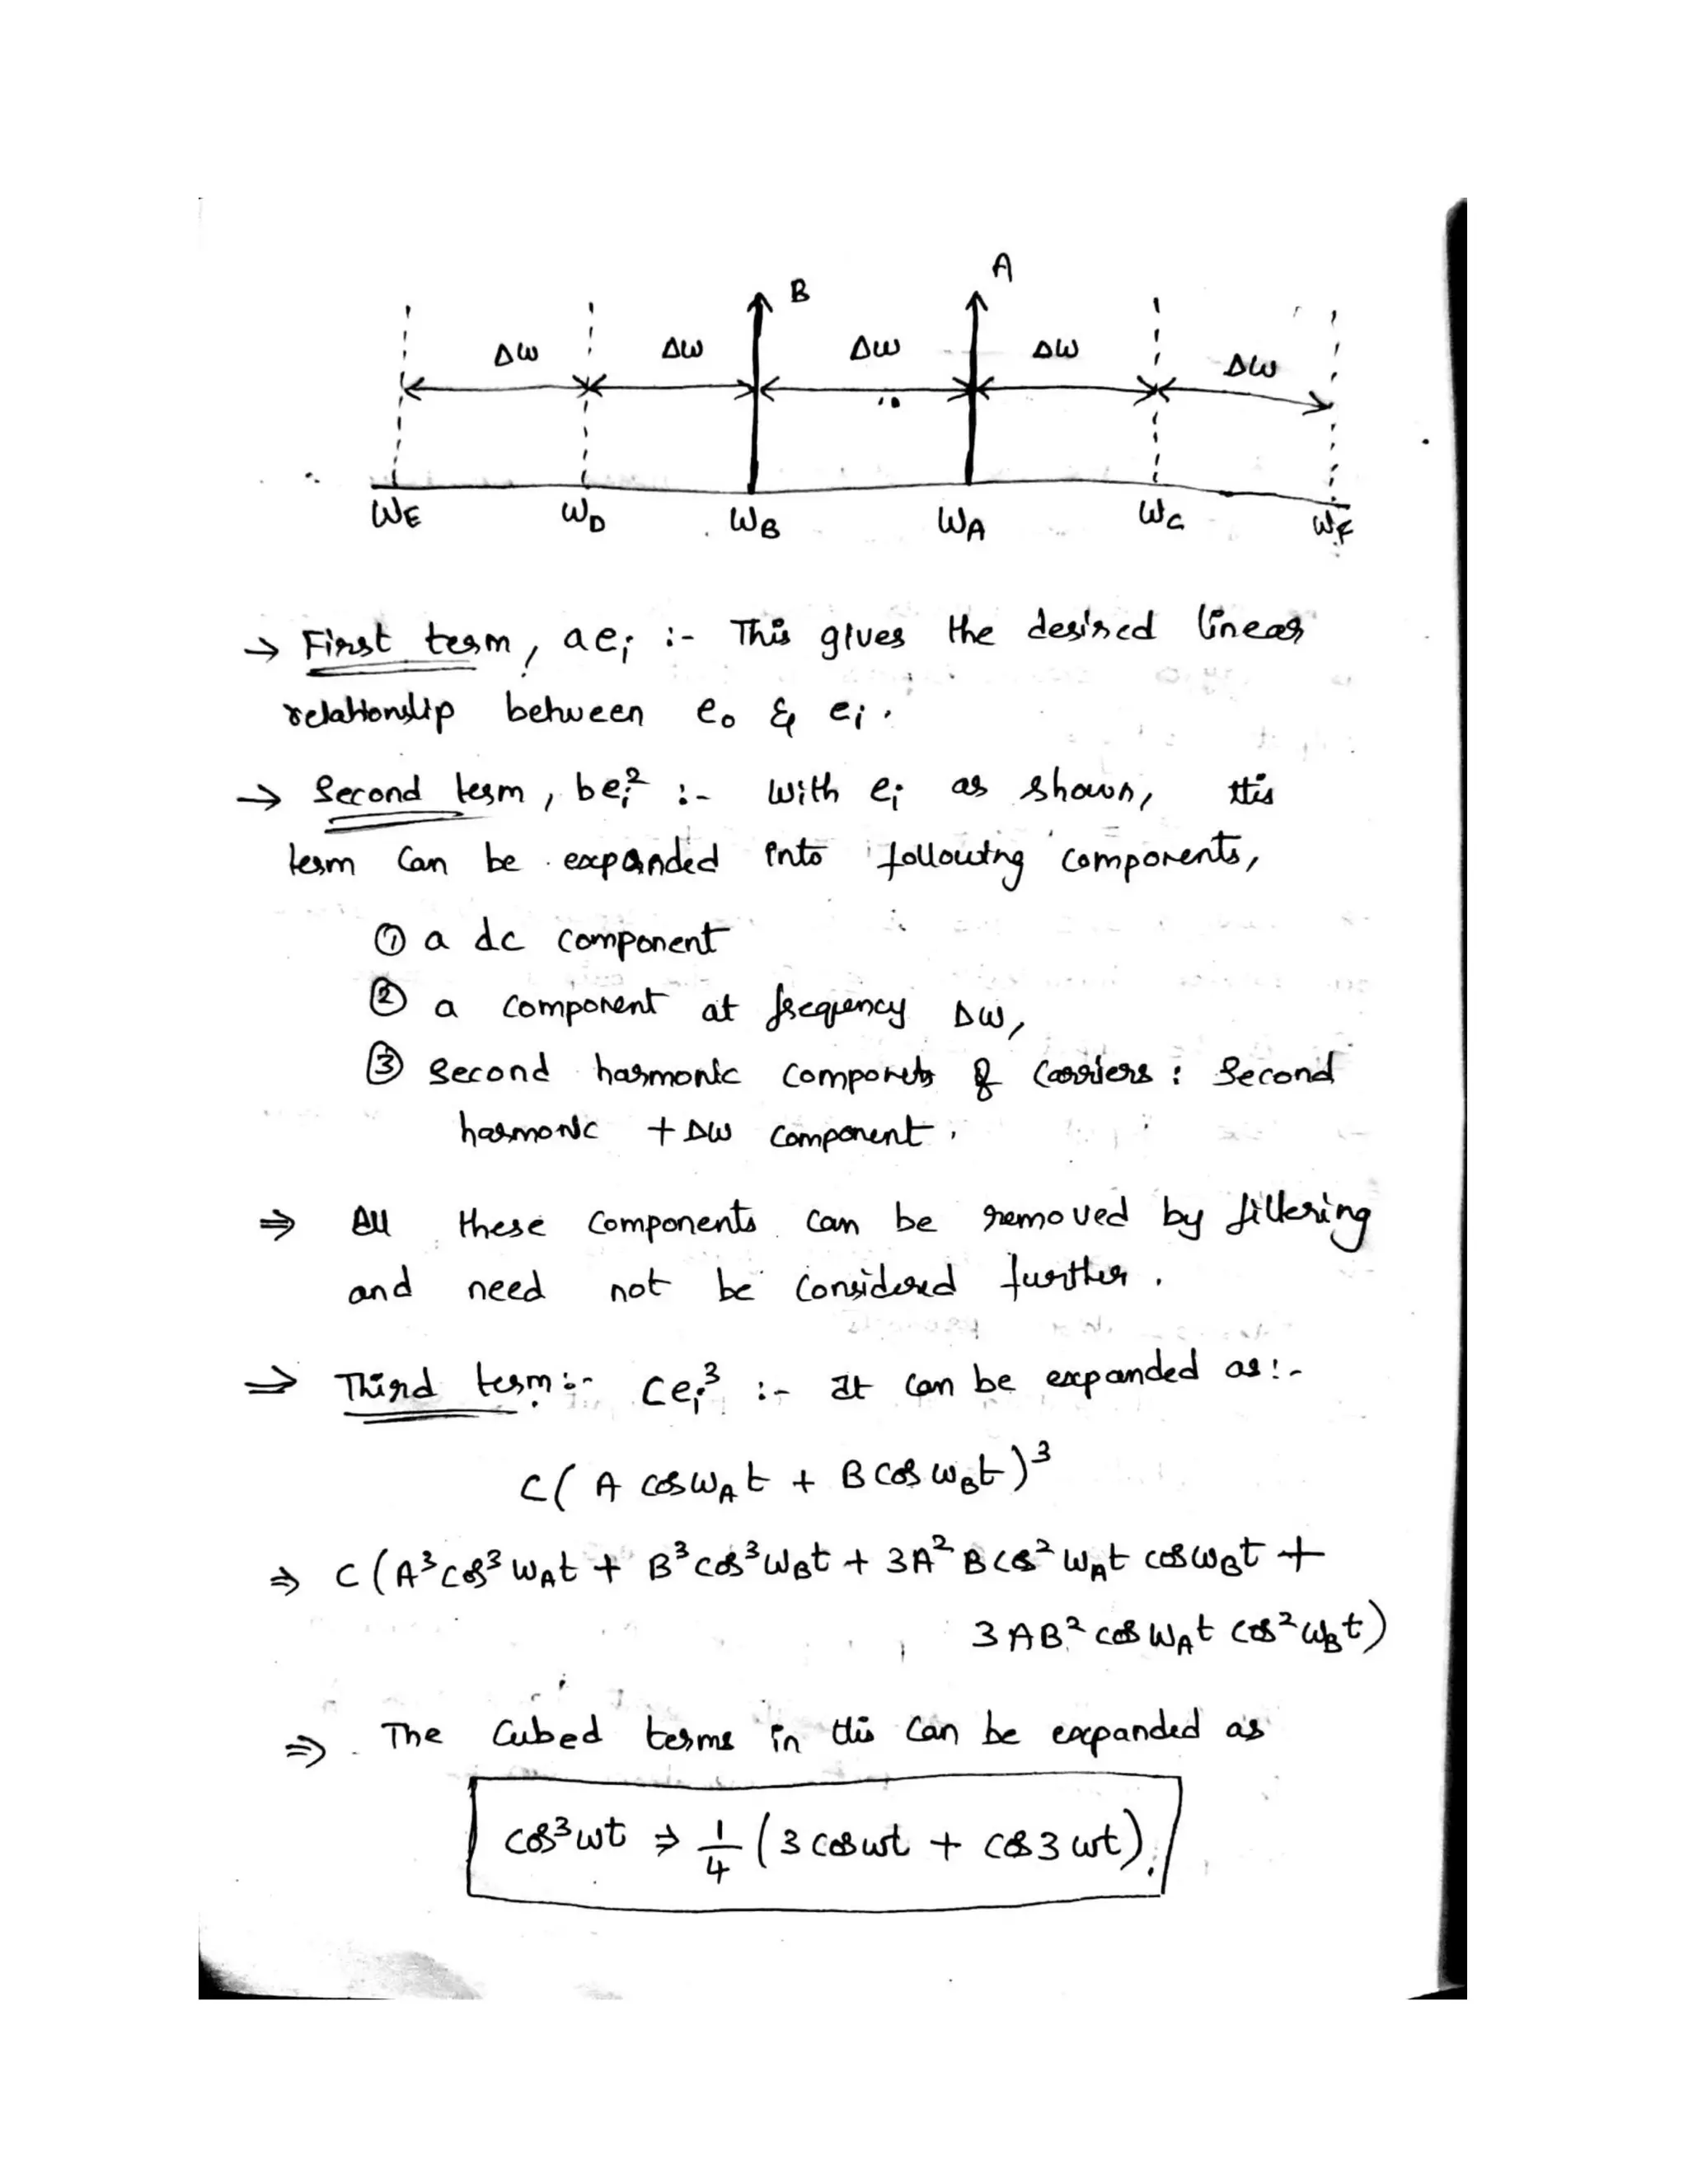 B A
Δω Δω Δω Δω Δω
ωE ωD ωB ωA ωC ωF
→ First term, aei :- This gives the desired linear
relationship between eo & ei.
→ Second term, bei² :- With ei as shown, this
term can be expanded into following components,
① a dc component
② a component at frequency Δω,
③ Second harmonic components of carriers : Second
harmonic + Δω component.
⇒ All these components can be removed by filtering
and need not be considered further.
⇒ Third term :- cei³ :- It can be expanded as :-
C( A cos ωAt + B cos ωBt )³
⇒ C (A³cos³ ωAt + B³cos³ωBt + 3A²B cos² ωAt cos ωBt +
3AB² cos ωAt cos² ωBt)
⇒ The Cubed terms in this can be expanded as
cos³ωt ⇒ 1/4 (3 cos ωt + cos 3 ωt).